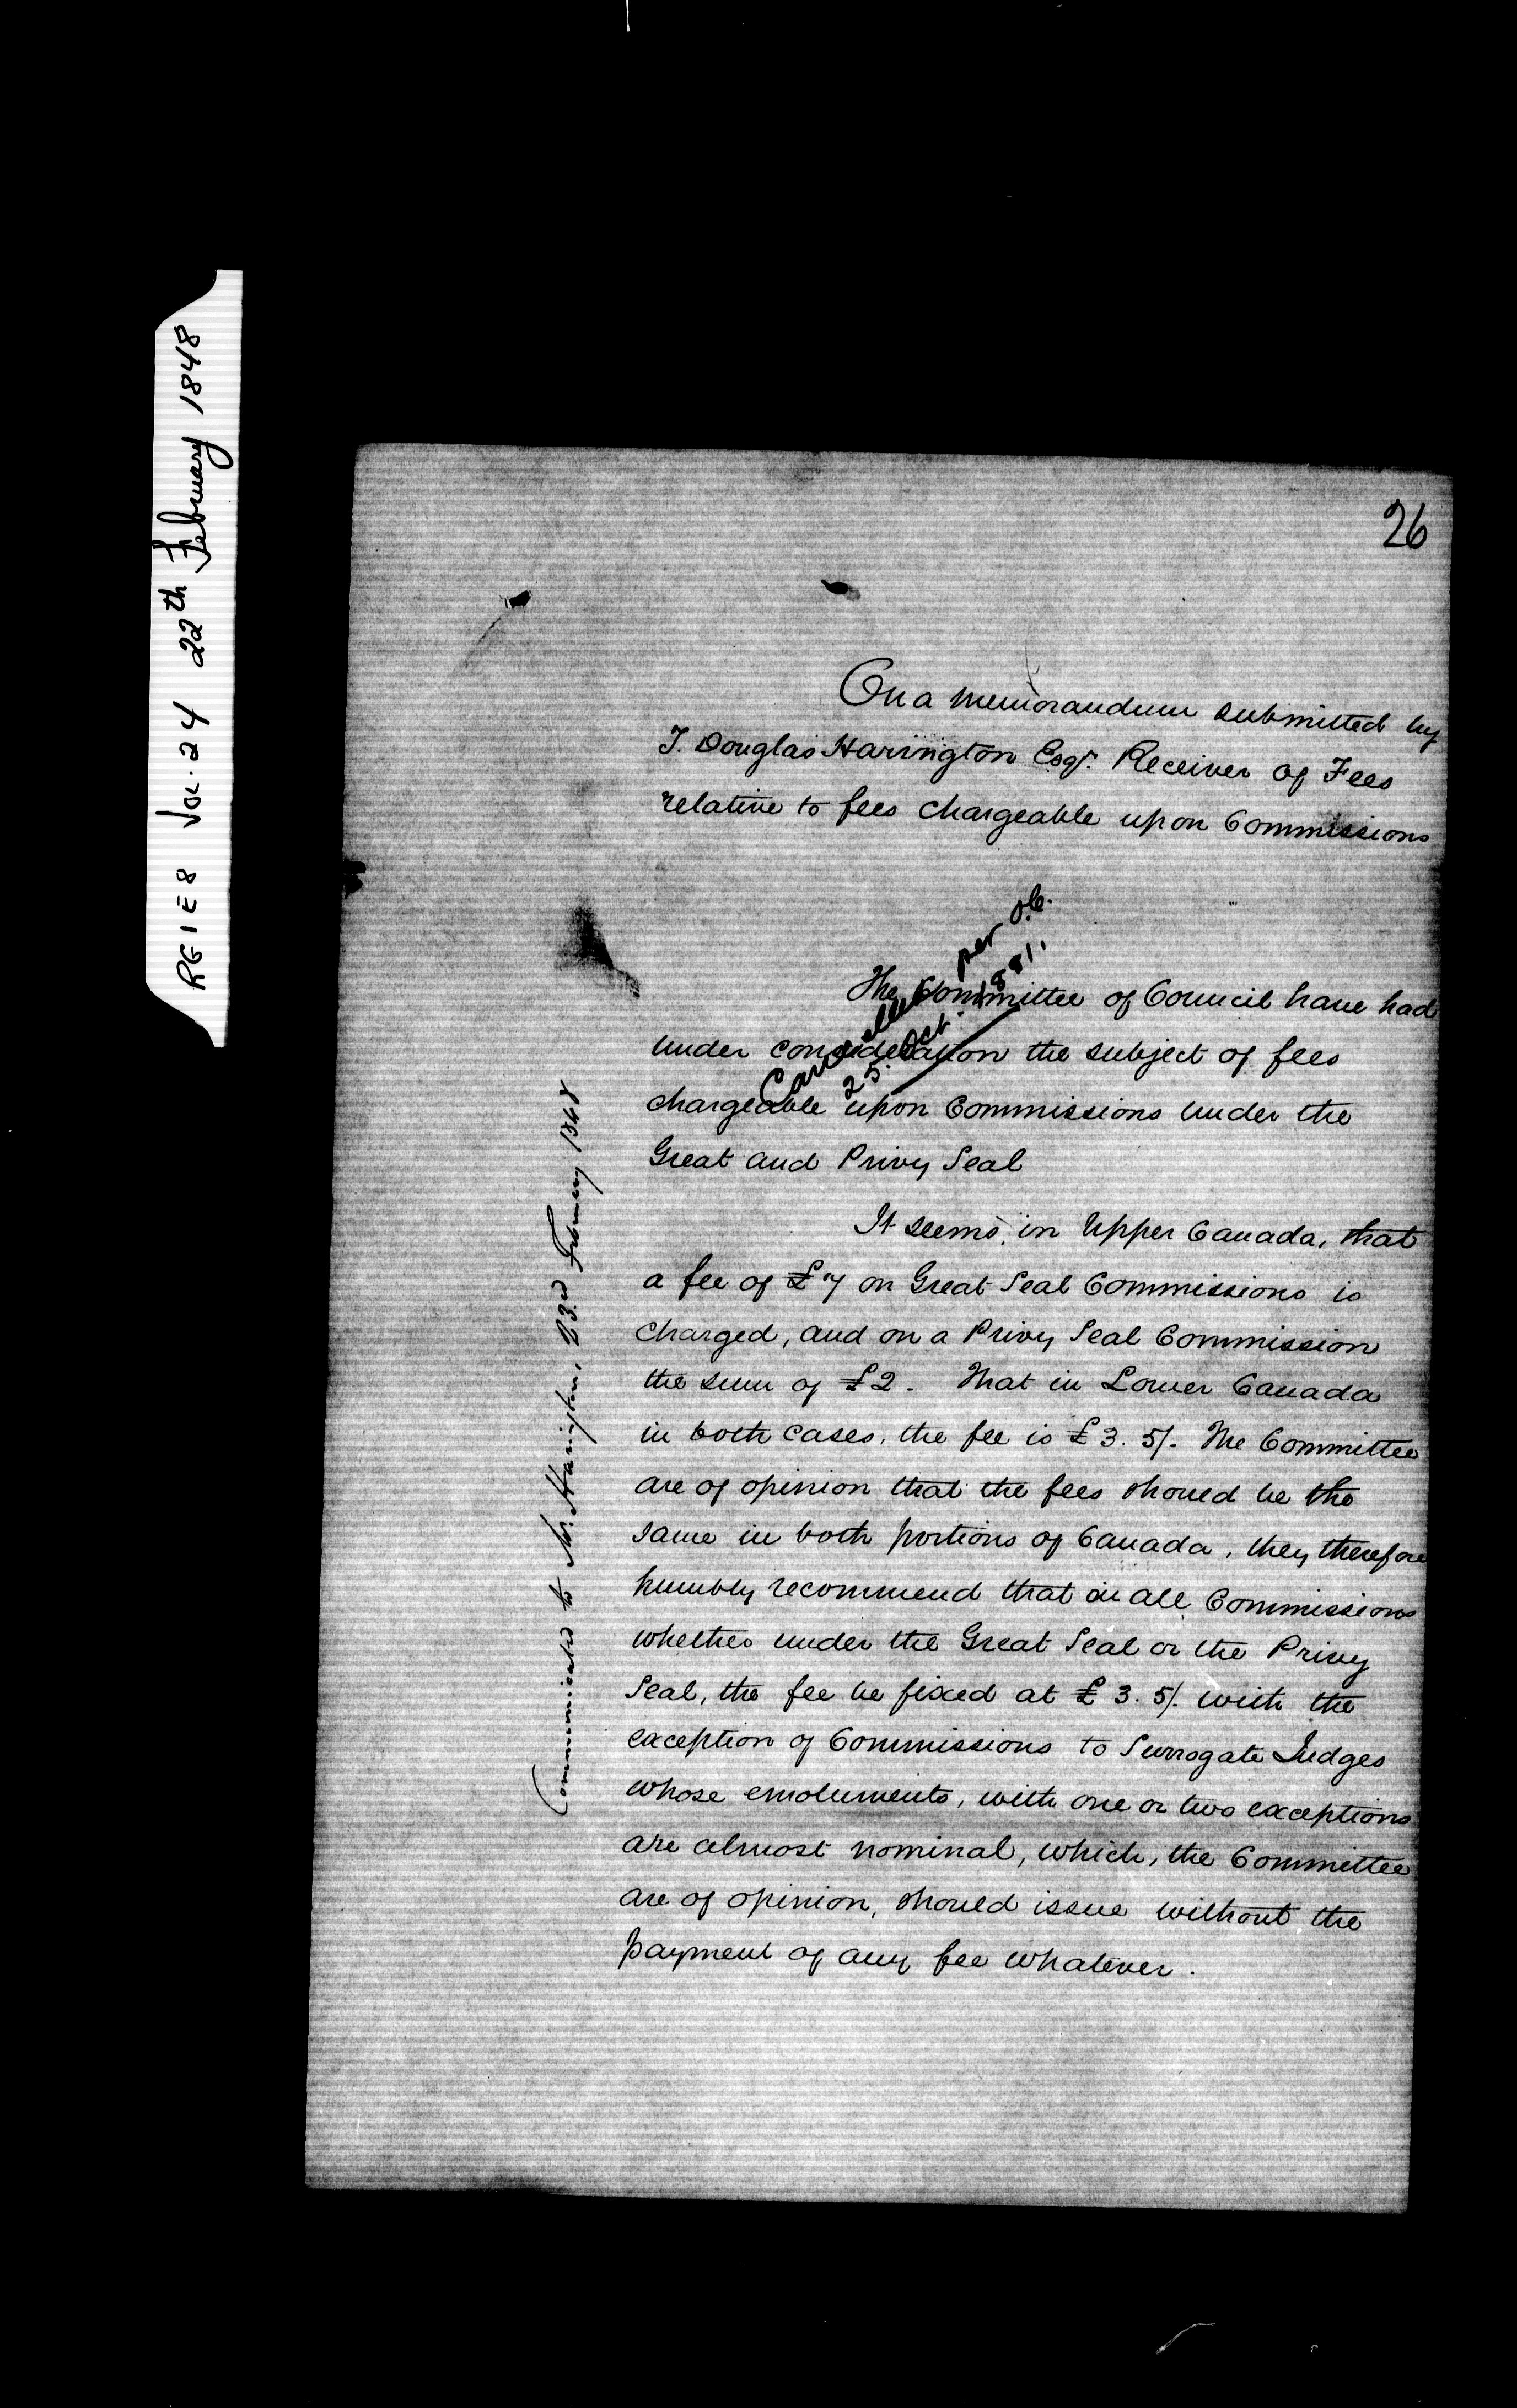 RG1E8 Vol. 24 22th February 1848
26
On a memorandum submitted by
T. Douglas Harington Esqr. Receiver of Fees
relative to fees chargeable upon Commissions
Cancelled per O.C.
25. Oct. 1881.
The Committee of Council have had
under consideration the subject of fees
chargeable upon Commissions under the
Great and Privy Seal
It seems, in Upper Canada, that
a fee of £7 on Great Seal Commissions is
charged, and on a Privy Seal Commission
the sum of £2. That in Lower Canada
in both cases, the fee is £3. 5/. The Committee
are of opinion that the fees should be the
same in both portions of Canada, they therefore
humbly recommend that in all Commissions
whether under the Great Seal or the Privy
Seal, the fee be fixed at £3. 5/. with the
exception of Commissions to Surrogate Judges
whose emoluments, with one or two exceptions
are almost nominal, which, the Committee
are of opinion, should issue without the
payment of any fee whatever.
Communicated to Mr. Harington, 23rd February 1848